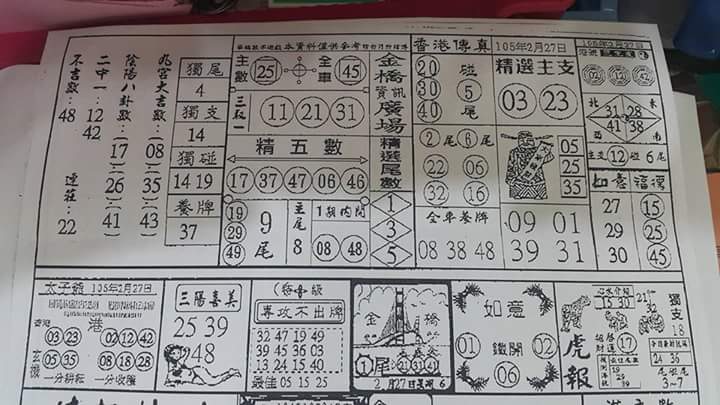 九宮大吉數:(08)(35)(43)
陰陽八卦數:(17)(26)(41)
二中一:12 42
不吉數:48
連莊:22
獨尾
4
獨支
14
獨碰
14 19
養牌
37
本資料僅供參考
主數 25 全車 45
三取一 11 21 31
精五數
17 37 47 06 46
19 29 49
9尾
主尾8
1期內開
08 48
金橋資訊廣場
精選尾數
1
3
5
香港傳真 105年2月27日
20 30 40 碰 5 尾
精選主支
03 23
2尾 6尾
22 06
32 16
05
25
35
全車養牌
08 38 48
09 01
39 31
105年2月27日
02 12 42
北 東
31 28
41 38
西 南
主支 12 碰 6尾
如意福德
27 15
29 25
30 45
太子爺 105年2月27日
香港
港
03 23
02 12 42
玄機
05 35
08 18 28
一分耕耘 一分收穫
三陽喜美
25 39
48
專攻不出牌
32 47 19 49
39 45 36 06
13 24 15 40
最佳 05 15 25
金橋
1尾 21 31 41
2月27日星期6
如意
01
鐵開
02 02
06
15 30
21
32
獨支
18
虎報
17
19
25
39
24 36
3~7